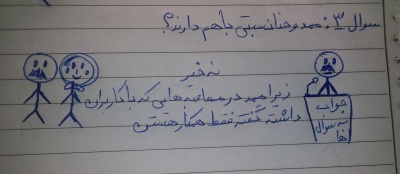 سوال ۳: حمد و حنا نسبتی با هم دارند؟
نه خیر
زیرا حمد در مصاحبه هایی که با کاربران
داشته گفته فقط همکار هستن
جواب
به سوال
ها